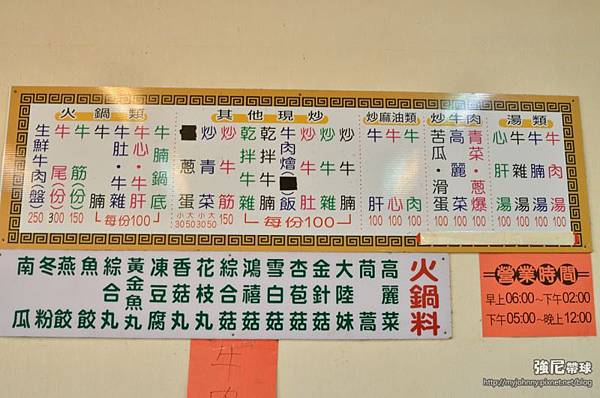 火鍋類
生鮮牛肉(盤) 250
牛尾(份) 300
牛筋(份) 150
牛腩
牛肚·牛雜
牛心·牛肝
牛腩鍋底
每份100
其他現炒
蔥蛋 小30 大50
炒青菜 小30 大50
炒牛筋 150
乾拌牛雜
乾拌牛腩
牛肉燴( )飯
炒牛肚
炒牛雜
炒牛腩
每份100
炒麻油類
牛肝 100
牛心 100
牛肉 100
炒牛肉
苦瓜·滑蛋 100
高麗菜 100
青菜·蔥爆 100
湯類
心肝湯 100
牛雜湯 100
牛腩湯 100
牛肉湯 100
火鍋料
高麗菜
茼蒿
大陸妹
金針菇
杏苞菇
雪白菇
鴻禧菇
綜合菇
花枝丸
香菇丸
凍豆腐
黃金魚丸
綜合丸
魚餃
燕餃
冬粉
南瓜
營業時間
早上06:00~下午02:00
下午05:00~晚上12:00
牛
強尼帶球
http://myjohnny.pixnet.net/blog